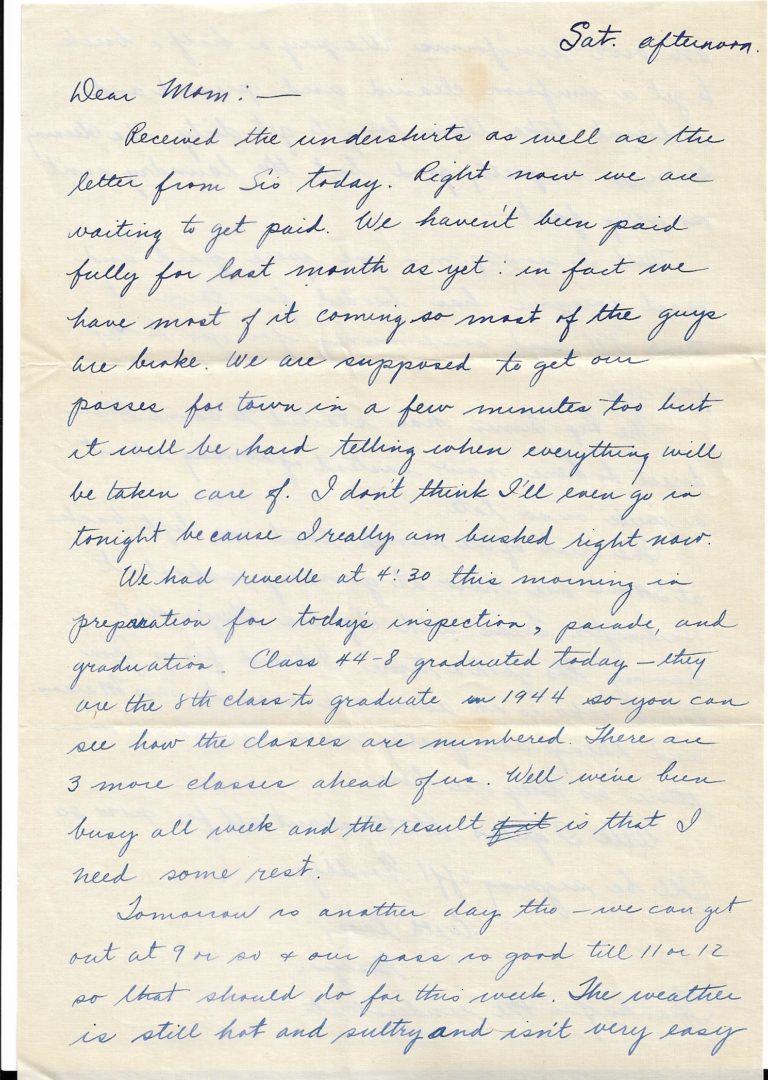 Sat. afternoon.
Dear Mom: —
Received the undershirts as well as the
letter from Sis today. Right now we are
waiting to get paid. We haven't been paid
fully for last month as yet: in fact we
have most of it coming so most of the guys
are broke. We are supposed to get our
passes for town in a few minutes too but
it will be hard telling when everything will
be taken care of. I don't think I'll even go in
tonight because I really am bushed right now.
We had reveille at 4:30 this morning in
preparation for today's inspection, parade, and
graduation. Class 44-8 graduated today — they
are the 8th class to graduate in 1944 so you can
see how the classes are numbered. There are
3 more classes ahead of us. Well we've been
busy all week and the result of it is that I
need some rest.
Tomorrow is another day tho — we can get
out at 9 or so & our pass is good till 11 or 12
so that should do for this week. The weather
is still hot and sultry and isn't very easy